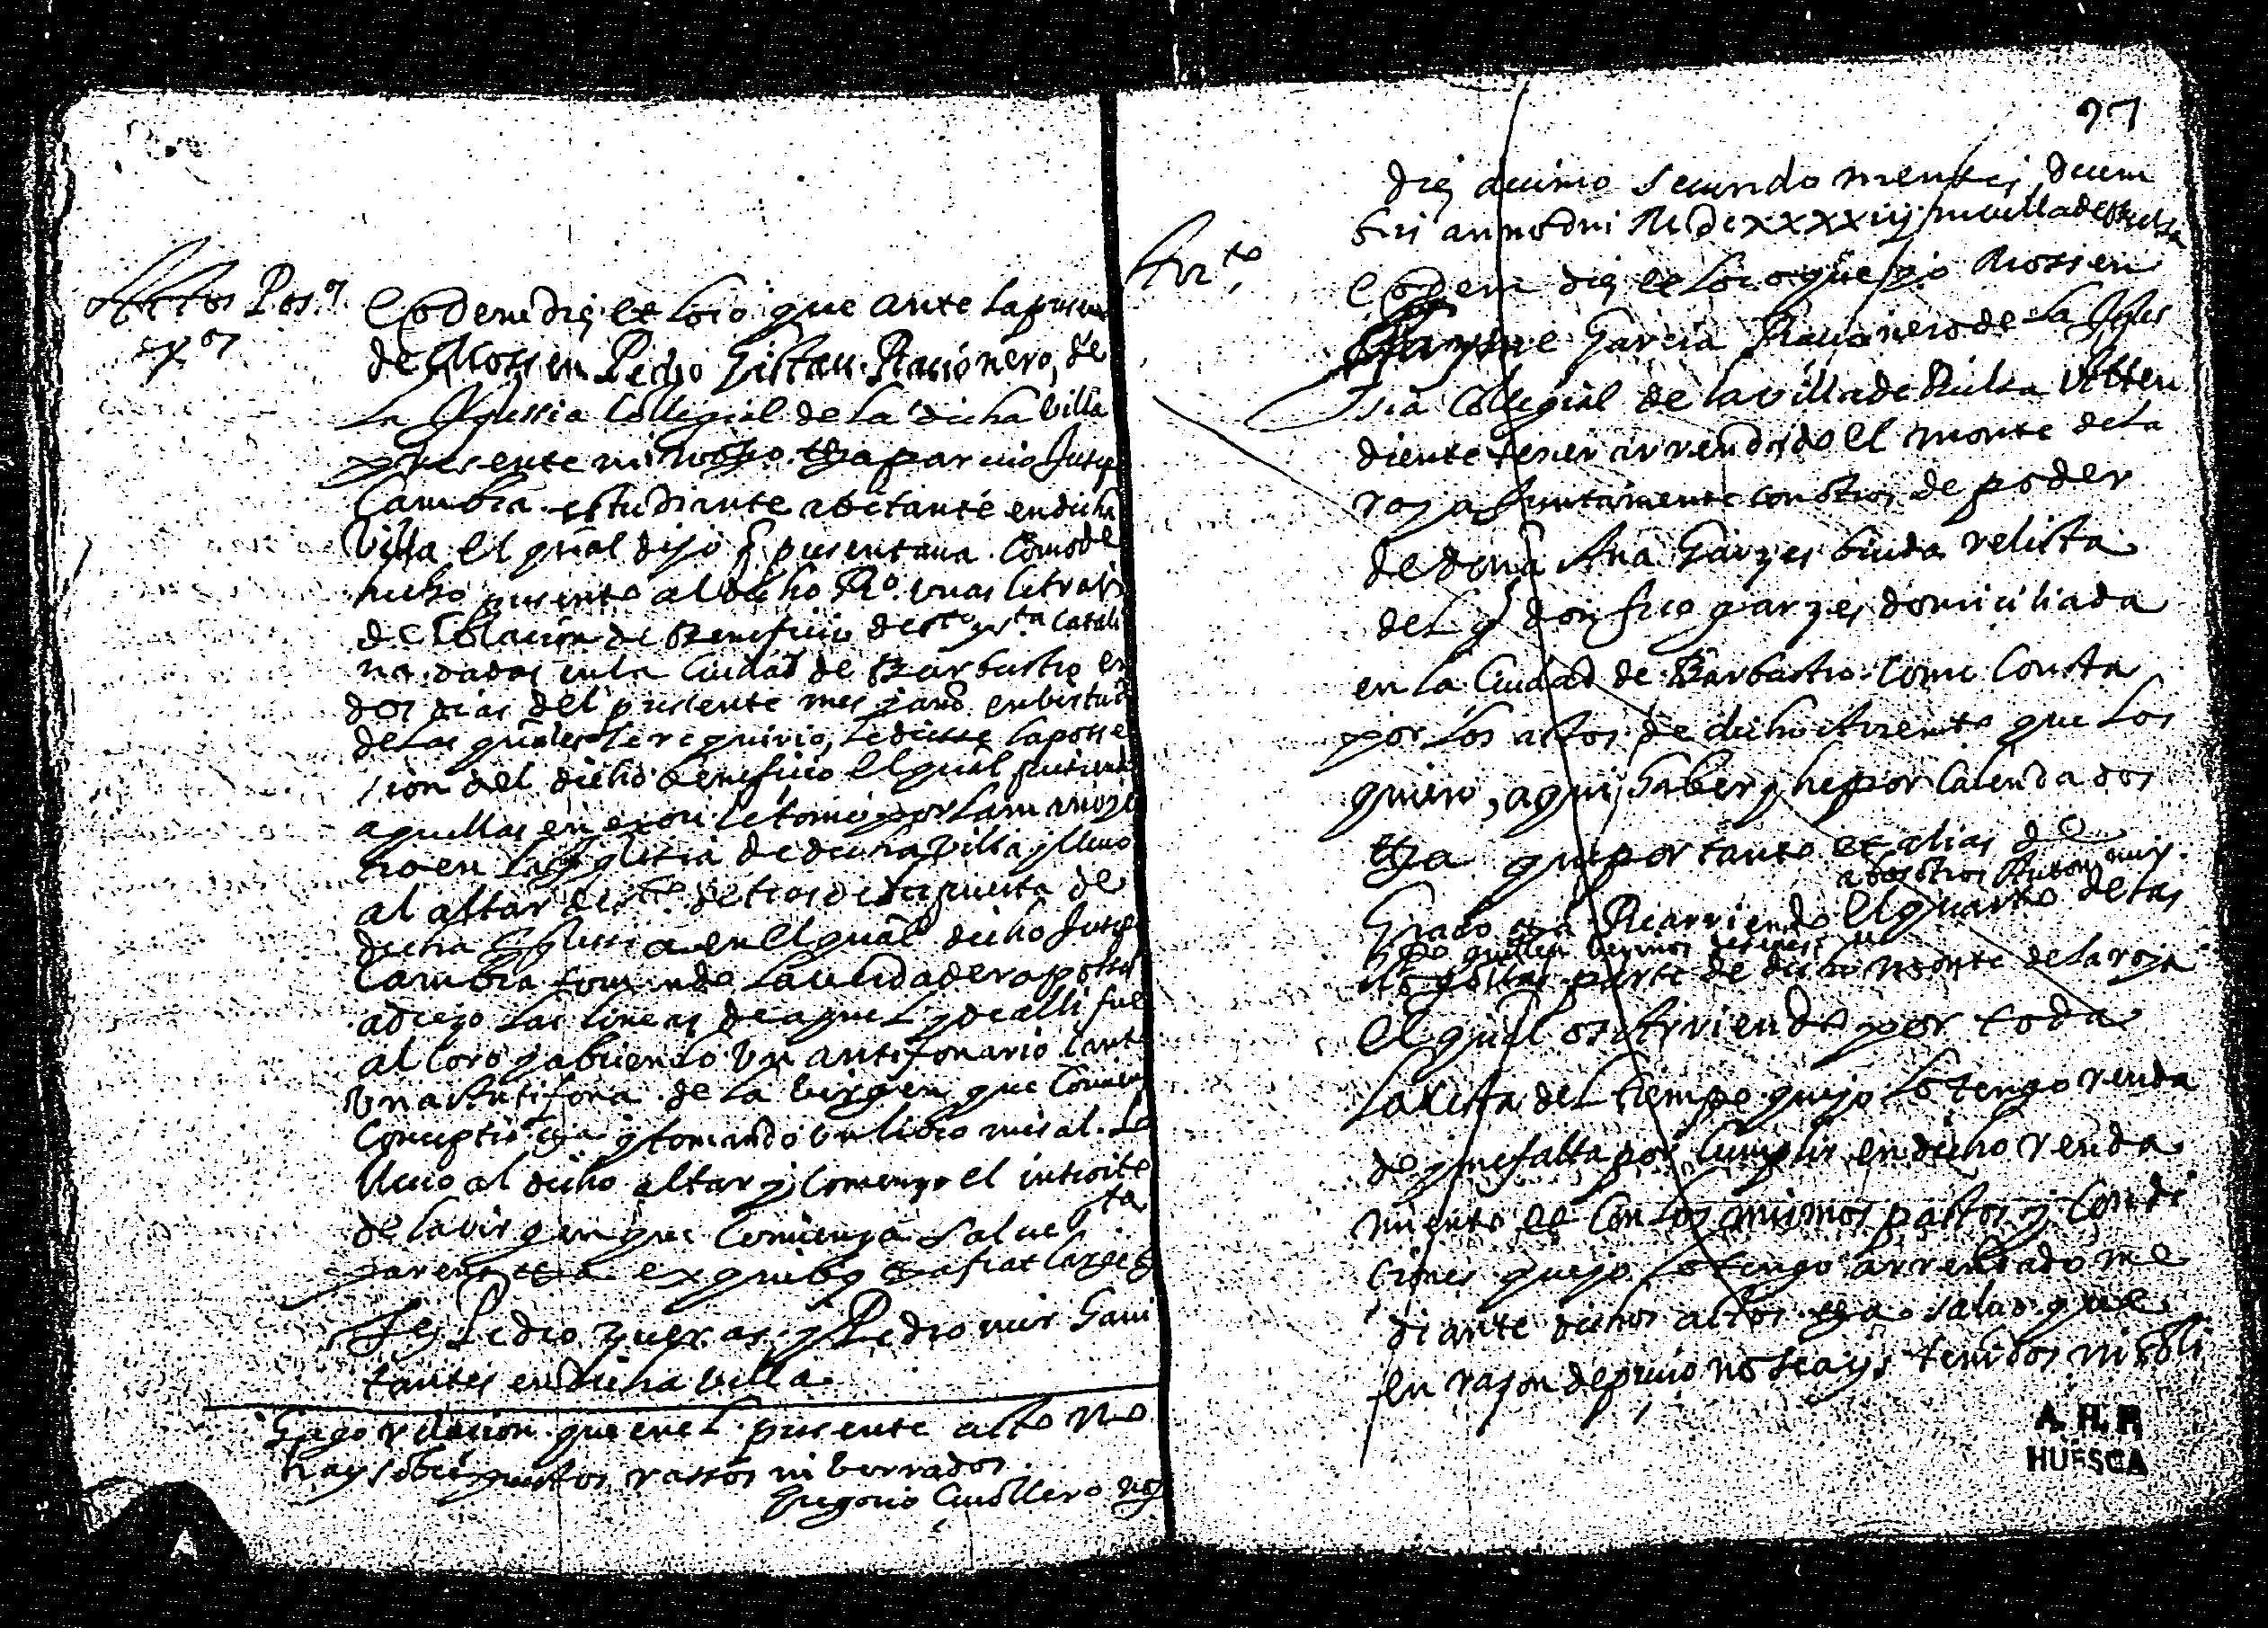 Actos Pos.on
Eodem die et loco que ante la presen
de Mossen Pedro Gistau Racionero, de
la Yglessia Collegial de la dicha Villa
presente mi nott.o ett.a parecio Jusepe
Cambra estudiante abitante en dicha
Villa el qual dijo q presentava como de
hecho presento al dicho R.o unas letras
de Colacion de Beneficio de st.a Catali
na dadas en la Ciudad de Barbastro en
dos dias del presente mes y año en birtud
de las quales le requirio, le diesse la posse
sion del dicho beneficio el qual
aquellas en le tomo por la mano y
tro en la Yglesia de dicha Villa y lleuo
al altar detras de la puerta de
dicha Yglessia en el qual dicho Jusepe
Cambra tomando la verdadera posses
adrezo las lineas de aquel y de alli fue
al Coro y abriendo un antifonario canto
una Antifona de la birgen que comien
Conceptio ett.a y tomando un libro misal. se
lleuo al dicho altar y comenzo el introito
de la virgen que comienza Salue s.ta
parens ett.a ex quibus ett.a fiat large
Tes Pedro y Pedro mur Gaui
tantes en dicha Villa
Hago relacion que en el presente acto no
hay sobrepuestos rassos ni borrados
Gregorio not
97
die decimo secundo mensis decem
bris anno dni M Dc xxxxiiij in villa de Bielsa
Arr.to
Eodem die et loco que yo Mossen
Jayme Garcia Racionero de la Ygles
sia Collegial de la villa de Bielsa Atten
diente tener arrendado el monte de la
roya Juntamente con otros de poder
de doña Ana Garzes biuda relicta
del q don fr.co garzes domiciliada
en la Ciudad de Barbastro como consta
por los actos de dicho Arrento que los
quiero, aqui haber y he por calendados
ett.a que por tanto et alias de
a bosotros Anton
Grado ett.a Rearriendo el quarto de las
vecinos
parte de dicho monte de la roya
el qual os Arriendo por toda
la resta del tiempo que yo lo tengo renda
do y me falta por Cumplir en dicho renda
miento et con los mismos pactos y condi
ciones que yo lo tengo arrendado me
diante dichos actos ett.a saluo que
en razon de precio no seays tenidos ni obli
A. H. P.
HUESCA